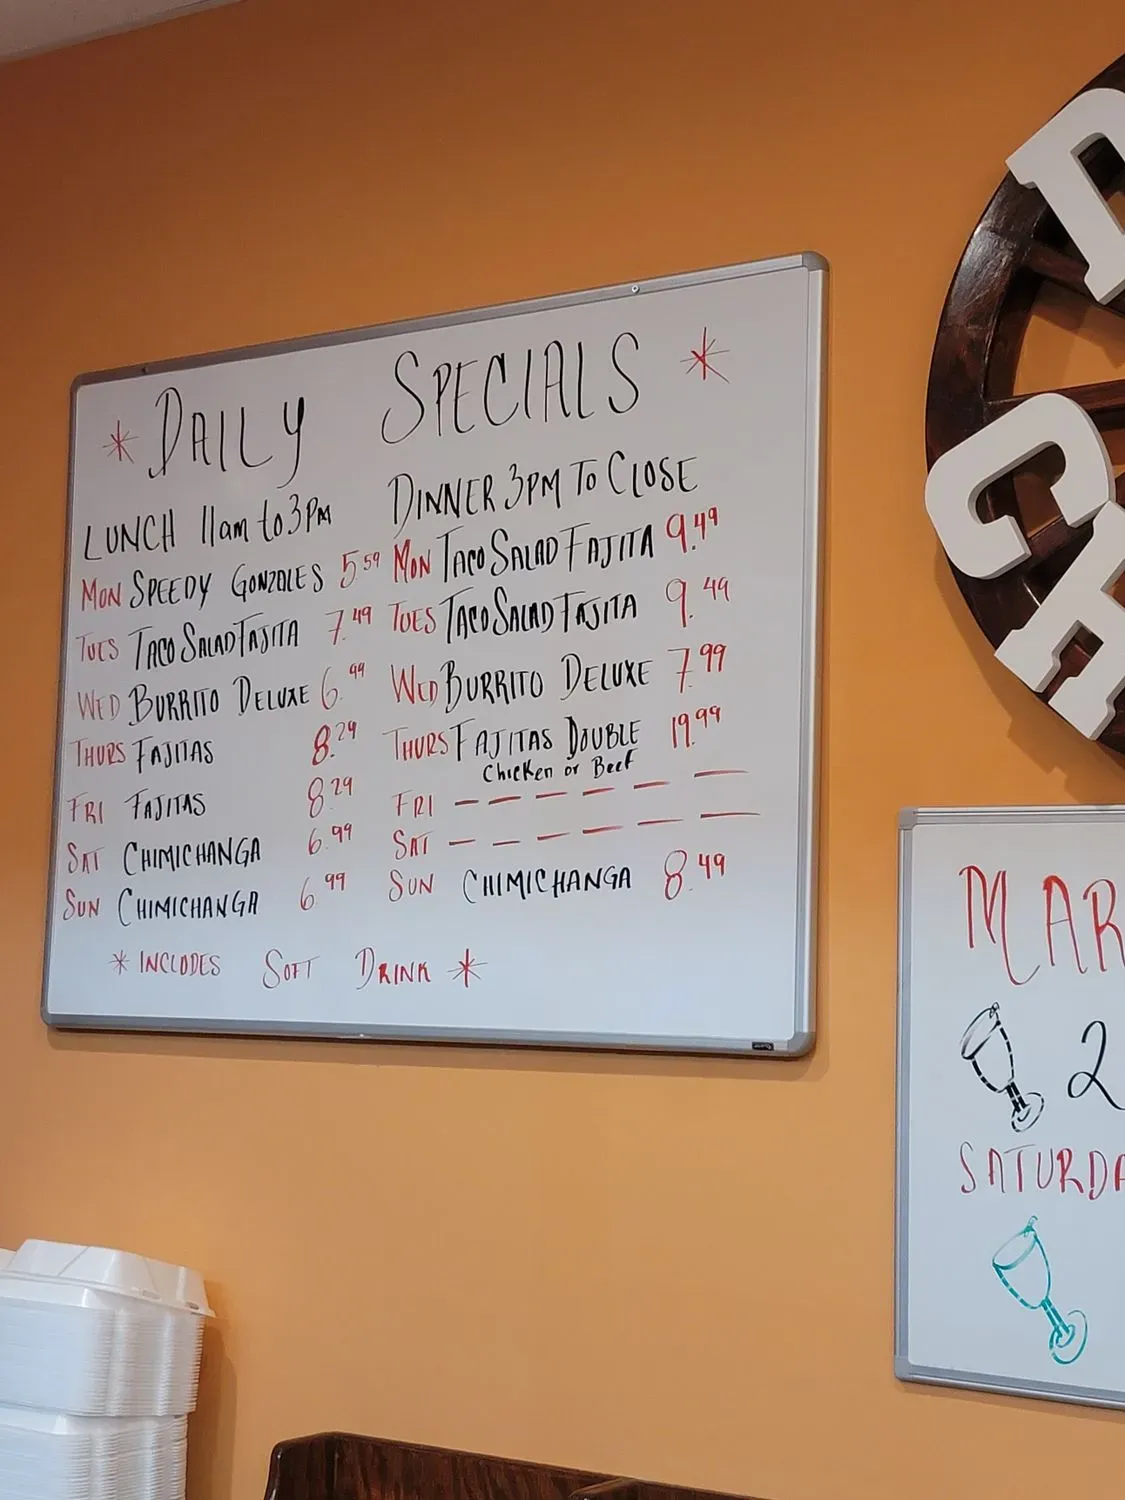 * DAILY SPECIALS *
LUNCH 11am to 3PM
MON SPEEDY GONZALES 5.59
TUES TACO SALAD FAJITA 7.49
WED BURRITO DELUXE 6.99
THURS FAJITAS 8.29
FRI FAJITAS 8.29
SAT CHIMICHANGA 6.99
SUN CHIMICHANGA 6.99
DINNER 3PM TO CLOSE
MON TACO SALAD FAJITA 9.49
TUES TACO SALAD FAJITA 9.49
WED BURRITO DELUXE 7.99
THURS FAJITAS DOUBLE 19.99
Chicken or Beef
FRI — — — — — —
SAT — — — — — —
SUN CHIMICHANGA 8.49
* INCLUDES SOFT DRINK *
MAR
2
SATURDA